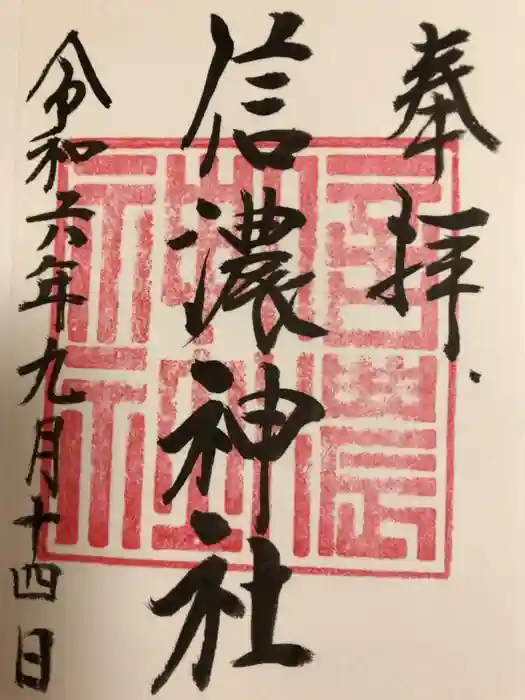 奉拝
信濃神社
令和六年九月十四日